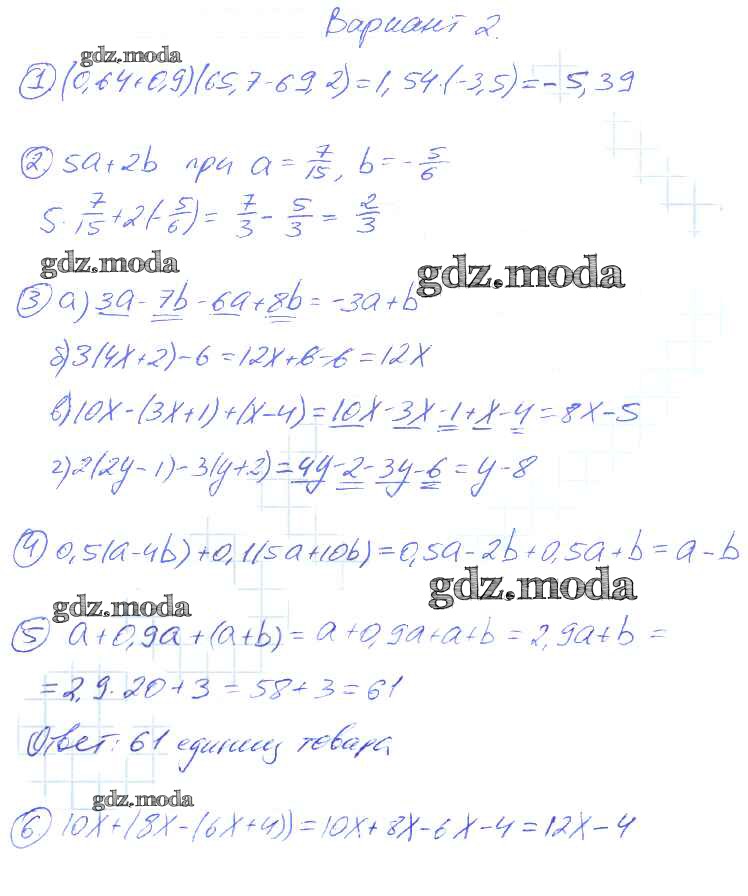 Вариант 2.
gdz.moda
① (0,64+0,9)(65,7-69,2)=1,54·(-3,5)=-5,39
② 5a+2b при a=7/15, b=-5/6
5·7/15+2(-5/6)=7/3-5/3=2/3
gdz.moda
gdz.moda
③ а) 3a-7b-6a+8b=-3a+b
б) 3(4x+2)-6=12x+6-6=12x
в) 10x-(3x+1)+(x-4)=10x-3x-1+x-4=8x-5
г) 2(2y-1)-3(y+2)=4y-2-3y-6=y-8
④ 0,5(a-4b)+0,1(5a+10b)=0,5a-2b+0,5a+b=a-b
gdz.moda
gdz.moda
⑤ a+0,9a+(a+b)=a+0,9a+a+b=2,9a+b=
=2,9·20+3=58+3=61
Ответ: 61 единиц товара
gdz.moda
⑥ 10x+(8x-(6x+4))=10x+8x-6x-4=12x-4